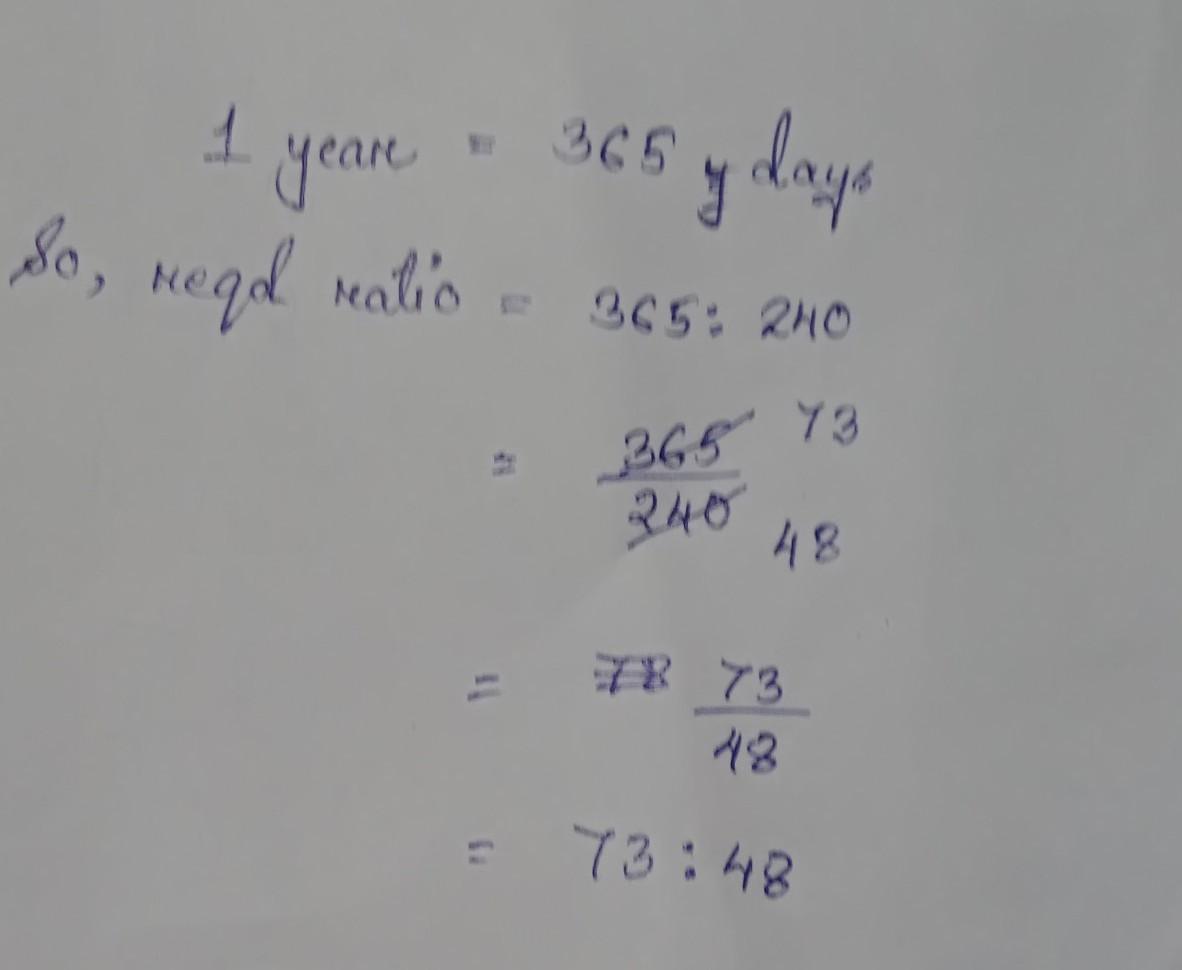 1 year = 365 y days
So, reqd ratio = 365: 240
= 365/240 73 48
= 78 73/48
= 73 : 48